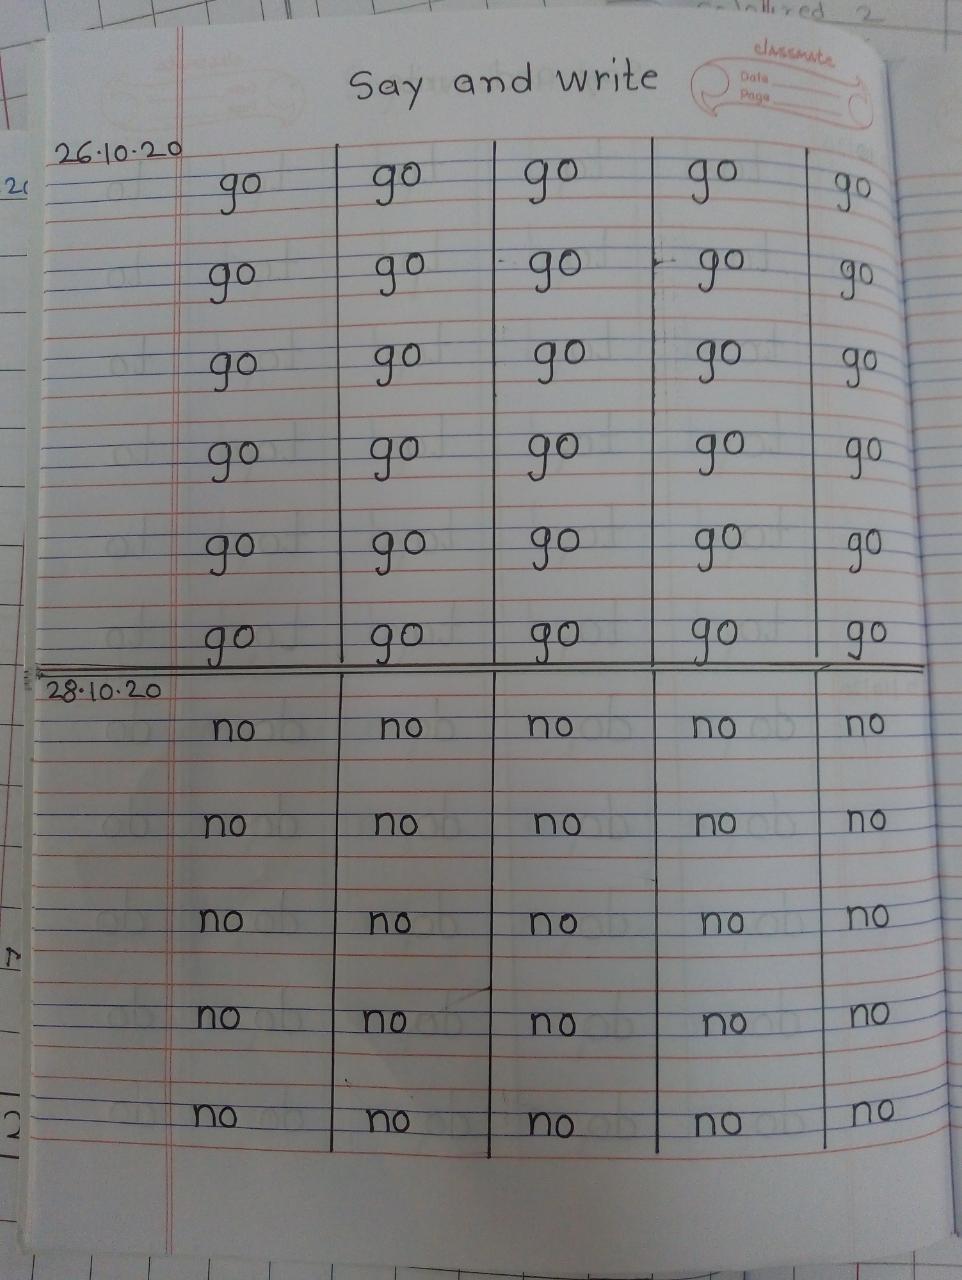 Say and write
classmate
Date
Page
26.10.20
go go go go go
go go go go go
go go go go go
go go go go go
go go go go go
go go go go go
28.10.20
no no no no no
no no no no no
no no no no no
no no no no no
no no no no no